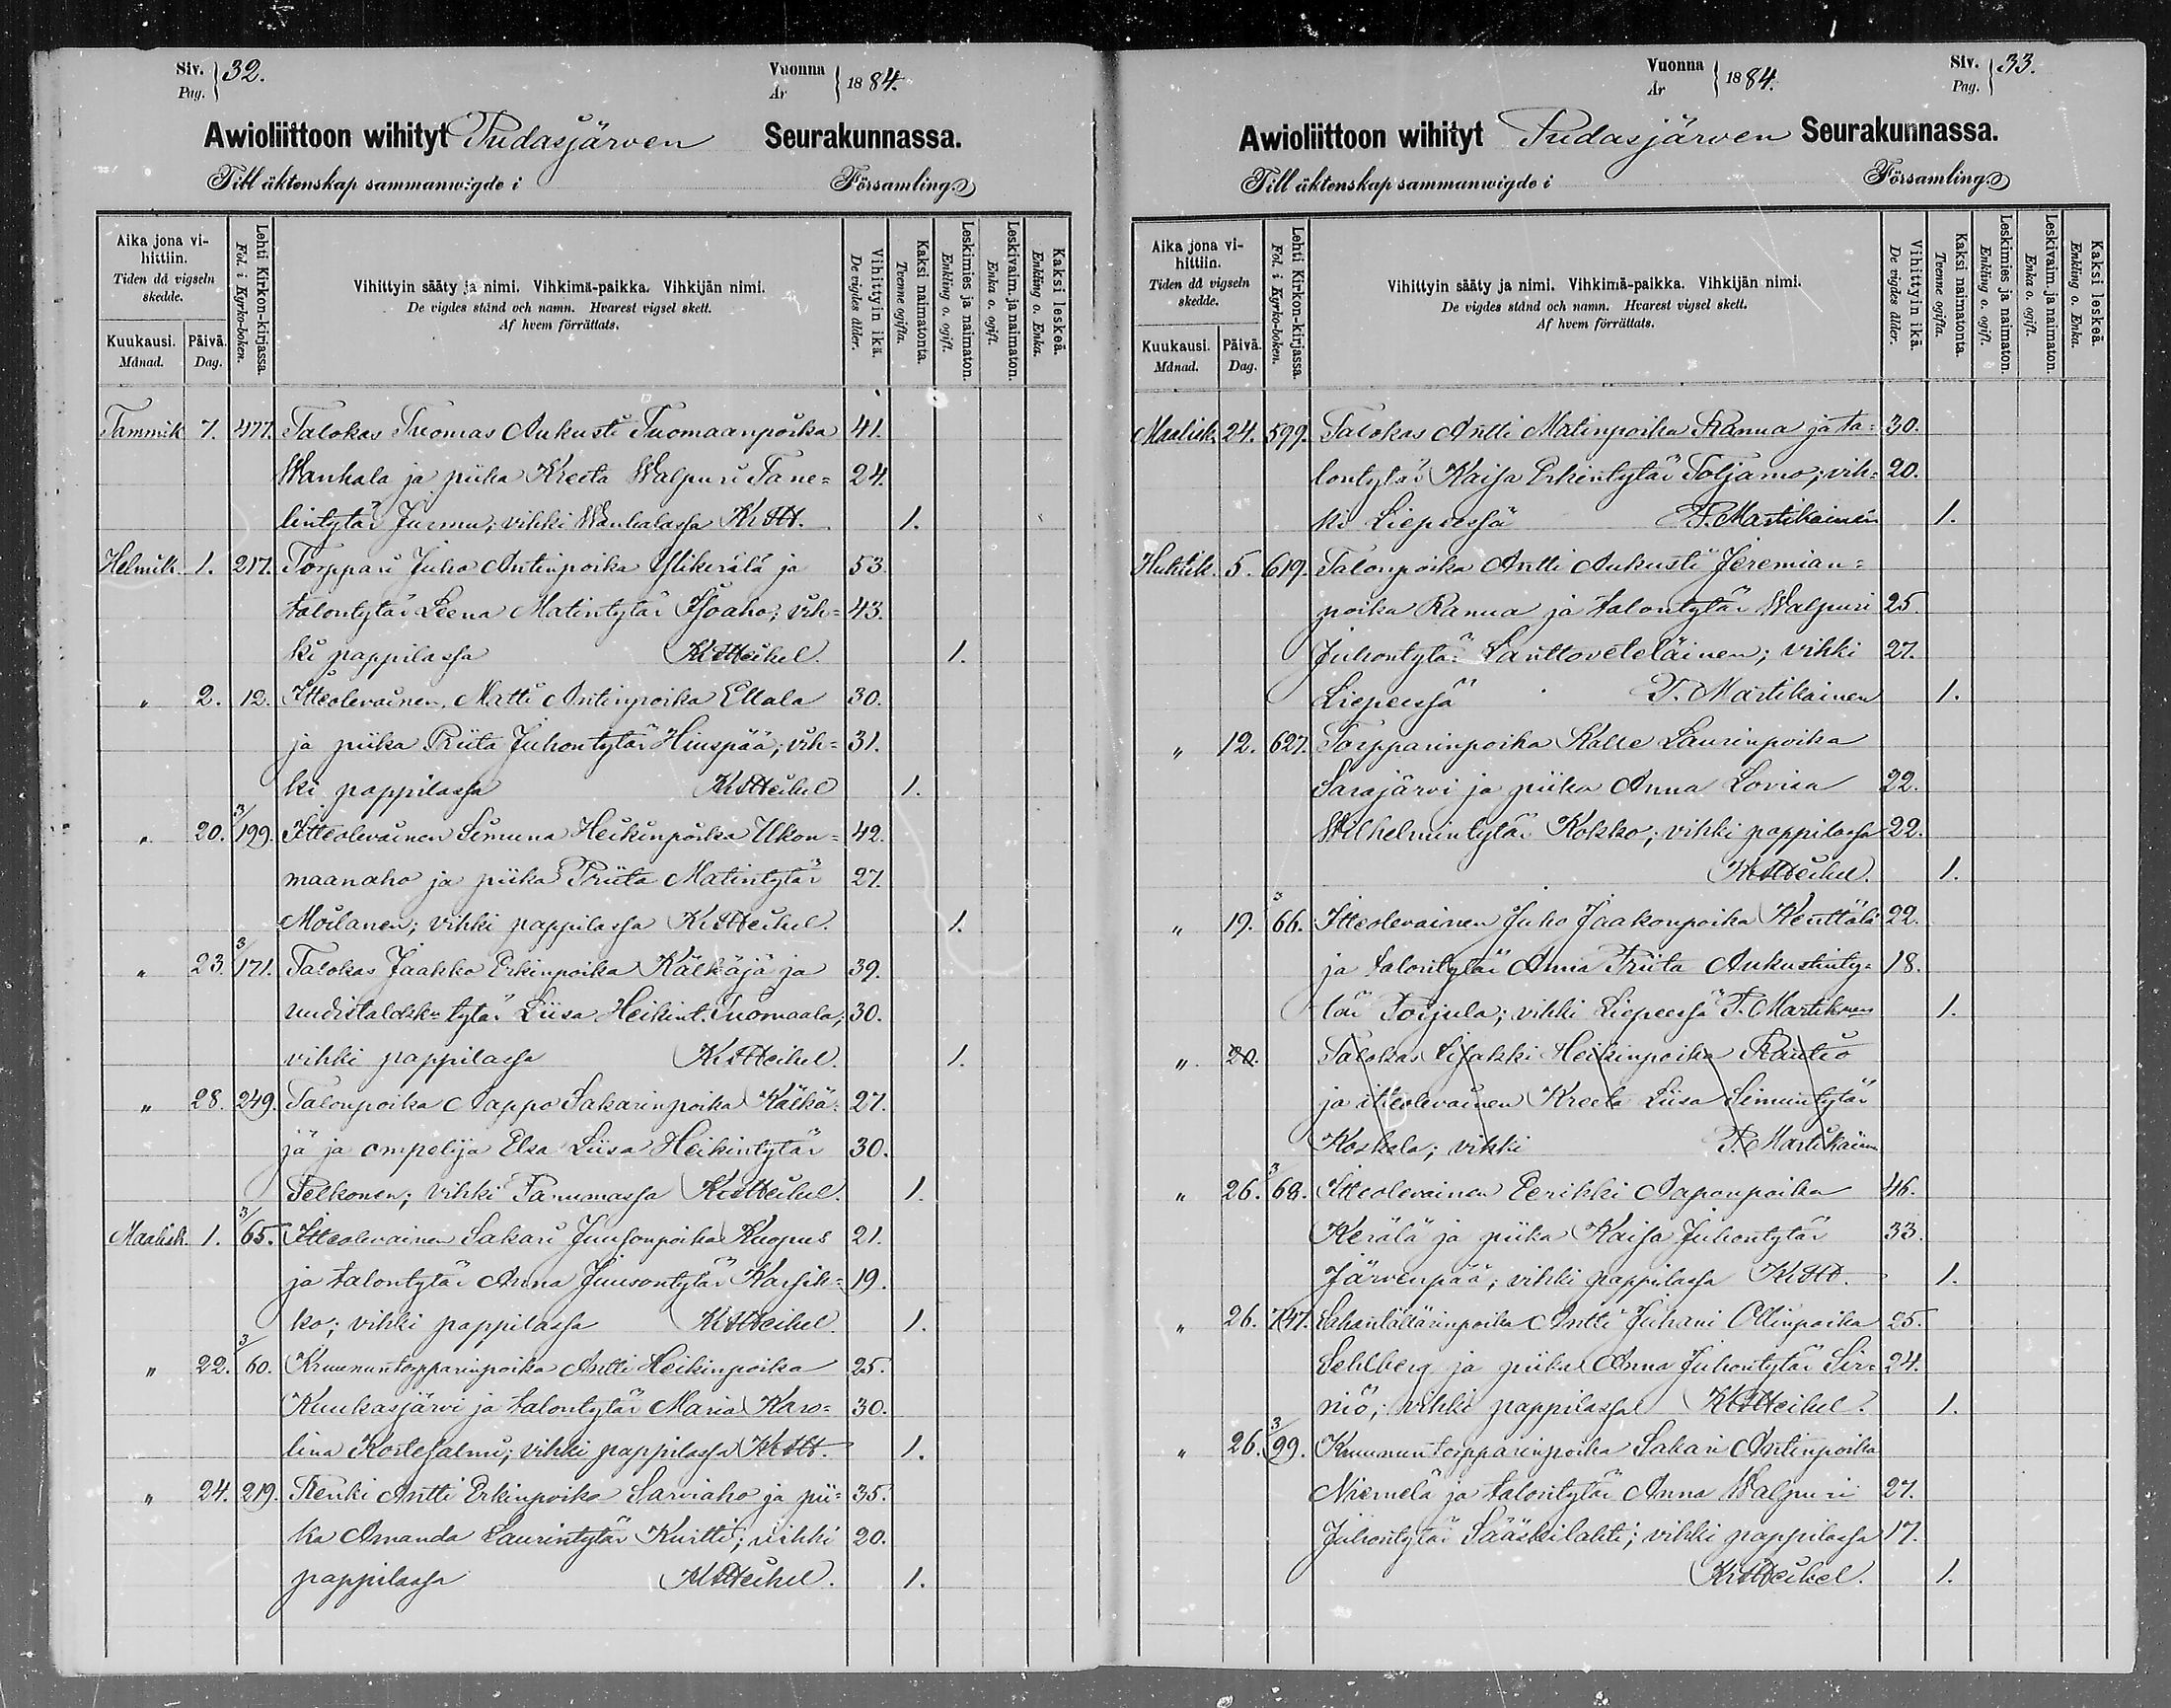 Siv. Pag. } 32.
Vuonna År } 1884.
Awioliittoon wihityt Pudasjärven Seurakunnassa.
Till äktenskap sammanwigde i Församling
Aika jona vihittiin.
Tiden då vigseln skedde.
Kuukausi. Månad.
Päivä. Dag.
Lehti Kirkon-kirjassa.
Fol. i Kyrko-boken.
Vihittyin sääty ja nimi. Vihkimä-paikka. Vihkijän nimi.
De vigdes stånd och namn. Hvarest vigsel skett.
Af hvem förrättats.
Vihittyin ikä.
De vigdes ålder.
Kaksi naimatonta.
Tvenne ogifta.
Leskimies ja naimaton.
Enkling o. ogift.
Leskivaim. ja naimaton.
Enka o. ogift.
Kaksi leskeä.
Enkling o. Enka.
Tammik 7. 477. Talokas Tuomas Aukusti Tuomaanpoika 41.
Wanhala ja piika Kreeta Walpuri Tane= 24.
lintytär Jurmu; vihki Wanhalassa KrHH. 1.
Helmik. 1. 217. Torppari Juho Antinpoika Ylikerälä ja 53.
talontytär Leena Matintytär Isoaho; vih= 43.
ki pappilassa KrHHeikel. 1.
" 2. 12. Itteolevainen Matti Antinpoika Ellala 30.
ja piika Priita Juhontytär Hiuspää; vih= 31.
ki pappilassa KrHHeikel 1.
" 20. 3/199. Itteolevainen Simuna Heikinpoika Ukon= 42.
maanaho ja piika Priita Matintytär 27.
Moilanen; vihki pappilassa KrHHeikel. 1.
" 23. 3/171. Talokas Jaakko Erkinpoika Kälkäjä ja 39.
uudistalokk= tytär Liisa Heikint. Tuomaala; 30.
vihki pappilassa KrHHeikel. 1.
" 28. 249. Talonpoika Aappo Sakarinpoika Kälkä= 27.
jä ja ompelija Elsa Liisa Heikintytär 30.
Pelkonen; vihki Panumassa KrHHeikel. 1.
Maalisk. 1. 3/65. Itteolevainen Sakari Juusonpoika Kuopus 21.
ja talontytär Anna Juusontytär Karsik= 19.
ko; vihki pappilassa KrHHeikel. 1.
" 22. 3/60. Kruununtorpparinpoika Antti Heikinpoika 25.
Kuukasjärvi ja talontytär Maria Karo= 30.
lina Kortesalmi; vihki pappilassa KrHH. 1.
" 24. 219. Renki Antti Erkinpoika Sarviaho ja pii= 35.
ka Amanda Laurintytär Kurtti; vihki 20.
pappilassa KrHHeikel. 1.
Vuonna År } 1884.
Siv. Pag. } 33.
Awioliittoon wihityt Pudasjärven Seurakunnassa.
Till äktenskap sammanwigde i Församling
Aika jona vihittiin.
Tiden då vigseln skedde.
Kuukausi. Månad.
Päivä. Dag.
Lehti Kirkon-kirjassa.
Fol. i Kyrko-boken.
Vihittyin sääty ja nimi. Vihkimä-paikka. Vihkijän nimi.
De vigdes stånd och namn. Hvarest vigsel skett.
Af hvem förrättats.
Vihittyin ikä.
De vigdes ålder.
Kaksi naimatonta.
Tvenne ogifta.
Leskimies ja naimaton.
Enkling o. ogift.
Leskivaim. ja naimaton.
Enka o. ogift.
Kaksi leskeä.
Enkling o. Enka.
Maalisk. 24. 599. Talokas Antti Matinpoika Ranua ja ta= 30.
lontytär Kaisa Erkintytär Toljamo; vih= 20.
ki Liepeessä T. Martikainen 1.
Huhtik. 5. 619. Talonpoika Antti Aukusti Jeremian=
poika Ranua ja talontytär Walpuri 25.
Juhontytär Lanttoveteläinen; vihki 27.
Liepeessä T. Martikainen 1.
" 12. 627. Torpparinpoika Kalle Laurinpoika
Sarajärvi ja piika Anna Lovisa 22.
Wilhelmintytär Kokko; vihki pappilassa 22.
KrHHeikel. 1.
" 19. 3/66. Itteolevainen Juho Jaakonpoika Kenttälä 22.
ja talontytär Anna Priita Aukustinty= 18.
tär Torjula; vihki Liepeessä T. Martiknen 1.
" 20. Talokas Iisakki Heikinpoika Rautio
ja itteolevainen Kreeta Liisa Simuntytär
Koskela; vihki T. Martikainen
" 26. 3/68. Itteolevainen Eerikki Aaponpoika 46.
Kerälä ja piika Kaisa Juhontytär 33.
Järvenpää; vihki pappilassa KrHH. 1.
" 26. 747. Sahanlättärinpoika Antti Juhani Ollinpoika 25.
Sehlberg ja piika Anna Juhontytär Sir= 24.
niö; vihki pappilassa KrHHeikel. 1.
" 26. 3/99. Kruununtorpparinpoika Sakari Antinpoika
Niemelä ja talontytär Anna Walpuri 27.
Juhontytär Sääskilahti; vihki pappilassa 17.
KrHHeikel. 1.